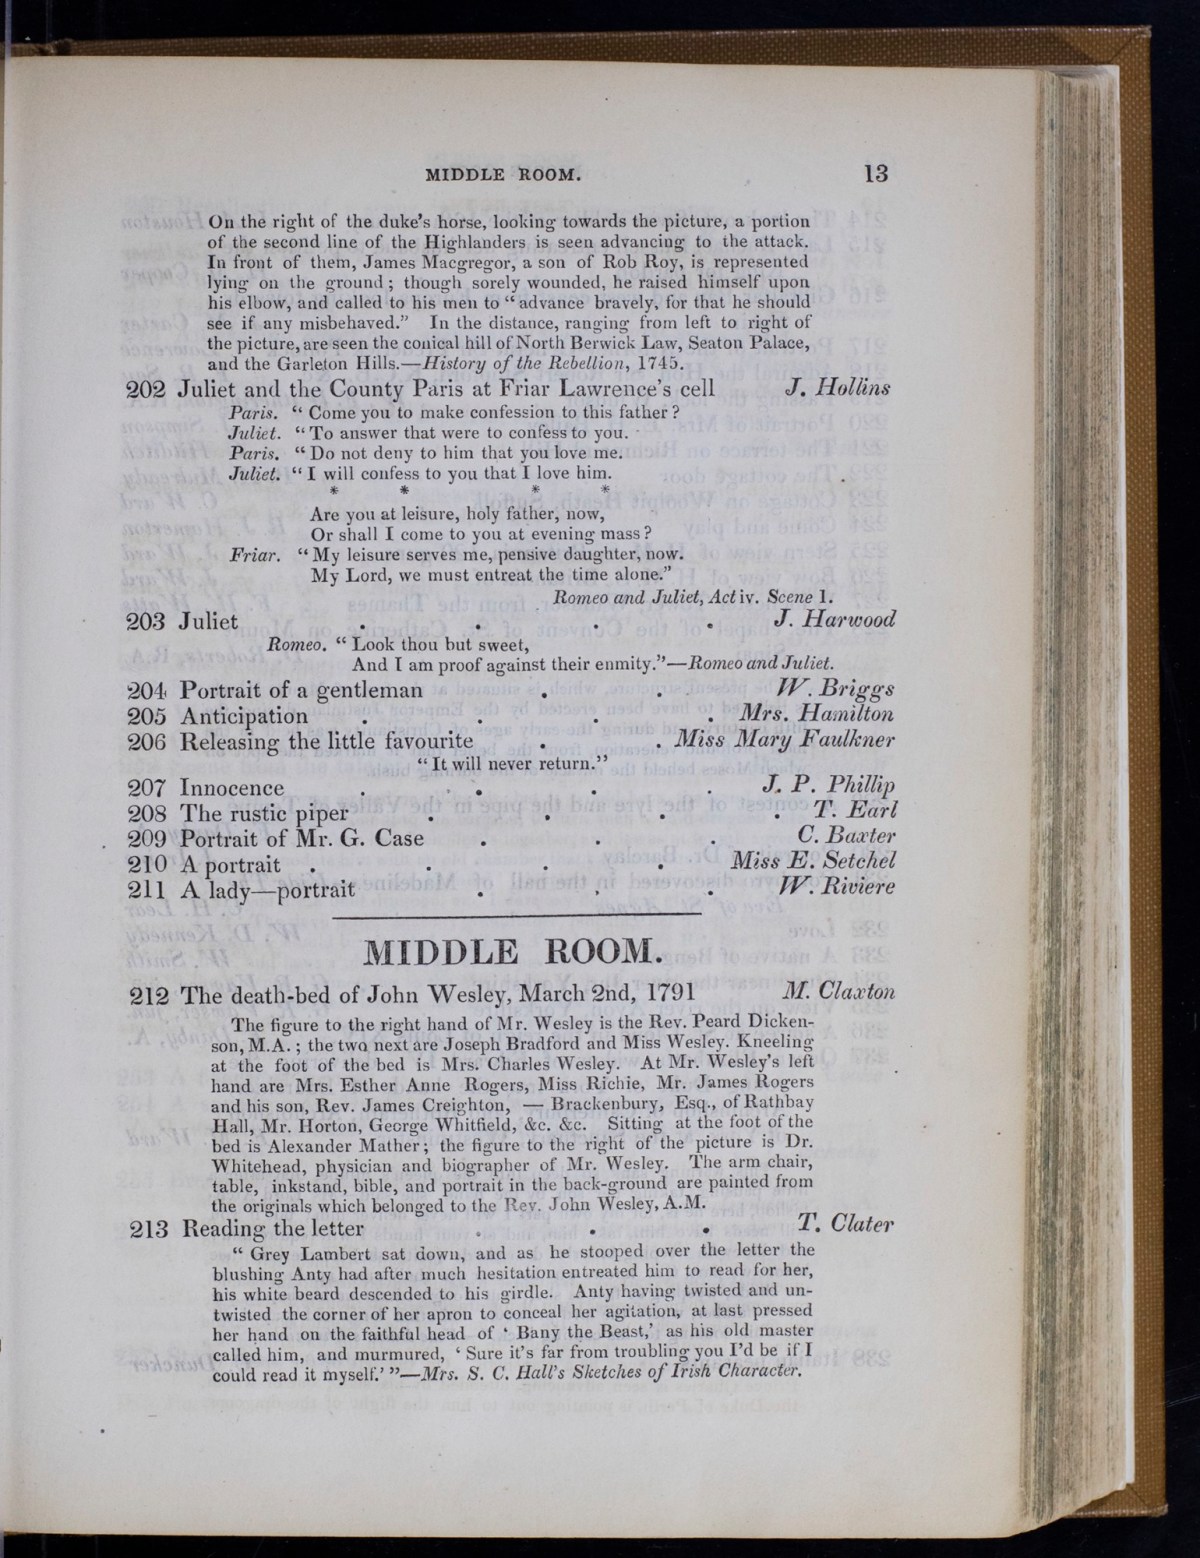 MIDDLE ROOM. 13
On the right of the duke's horse, looking towards the picture, a portion
of the second line of the Highlanders is seen advancing to the attack.
In front of them, James Macgregor, a son of Rob Roy, is represented
lying on the ground; though sorely wounded, he raised himself upon
his elbow, and called to his men to "advance bravely, for that he should
see if any misbehaved." In the distance, ranging from left to right of
the picture, are seen the conical hill of North Berwick Law, Seaton Palace,
and the Garleton Hills.—History of the Rebellion, 1745.
202 Juliet and the County Paris at Friar Lawrence's cell J. Hollins
Paris. "Come you to make confession to this father?
Juliet. "To answer that were to confess to you.
Paris. "Do not deny to him that you love me.
Juliet. "I will confess to you that I love him.
* * * *
Are you at leisure, holy father, now,
Or shall I come to you at evening mass?
Friar. "My leisure serves me, pensive daughter, now.
My Lord, we must entreat the time alone."
Romeo and Juliet, Act iv. Scene 1.
203 Juliet . . . . J. Harwood
Romeo. "Look thou but sweet,
And I am proof against their enmity."—Romeo and Juliet.
204 Portrait of a gentleman . . W. Briggs
205 Anticipation . . . . Mrs. Hamilton
206 Releasing the little favourite . . Miss Mary Faulkner
"It will never return."
207 Innocence . . . . J. P. Phillip
208 The rustic piper . . . . T. Earl
209 Portrait of Mr. G. Case . . . C. Baxter
210 A portrait . . . . Miss E. Setchel
211 A lady—portrait . . . W. Riviere
MIDDLE ROOM.
212 The death-bed of John Wesley, March 2nd, 1791 M. Claxton
The figure to the right hand of Mr. Wesley is the Rev. Peard Dicken-
son, M.A.; the two next are Joseph Bradford and Miss Wesley. Kneeling
at the foot of the bed is Mrs. Charles Wesley. At Mr. Wesley's left
hand are Mrs. Esther Anne Rogers, Miss Richie, Mr. James Rogers
and his son, Rev. James Creighton, — Brackenbury, Esq., of Rathbay
Hall, Mr. Horton, George Whitfield, &c. &c. Sitting at the foot of the
bed is Alexander Mather; the figure to the right of the picture is Dr.
Whitehead, physician and biographer of Mr. Wesley. The arm chair,
table, inkstand, bible, and portrait in the back-ground are painted from
the originals which belonged to the Rev. John Wesley, A.M.
213 Reading the letter . . . T. Clater
"Grey Lambert sat down, and as he stooped over the letter the
blushing Anty had after much hesitation entreated him to read for her,
his white beard descended to his girdle. Anty having twisted and un-
twisted the corner of her apron to conceal her agitation, at last pressed
her hand on the faithful head of 'Bany the Beast,' as his old master
called him, and murmured, 'Sure it's far from troubling you I'd be if I
could read it myself.'"—Mrs. S. C. Hall's Sketches of Irish Character.